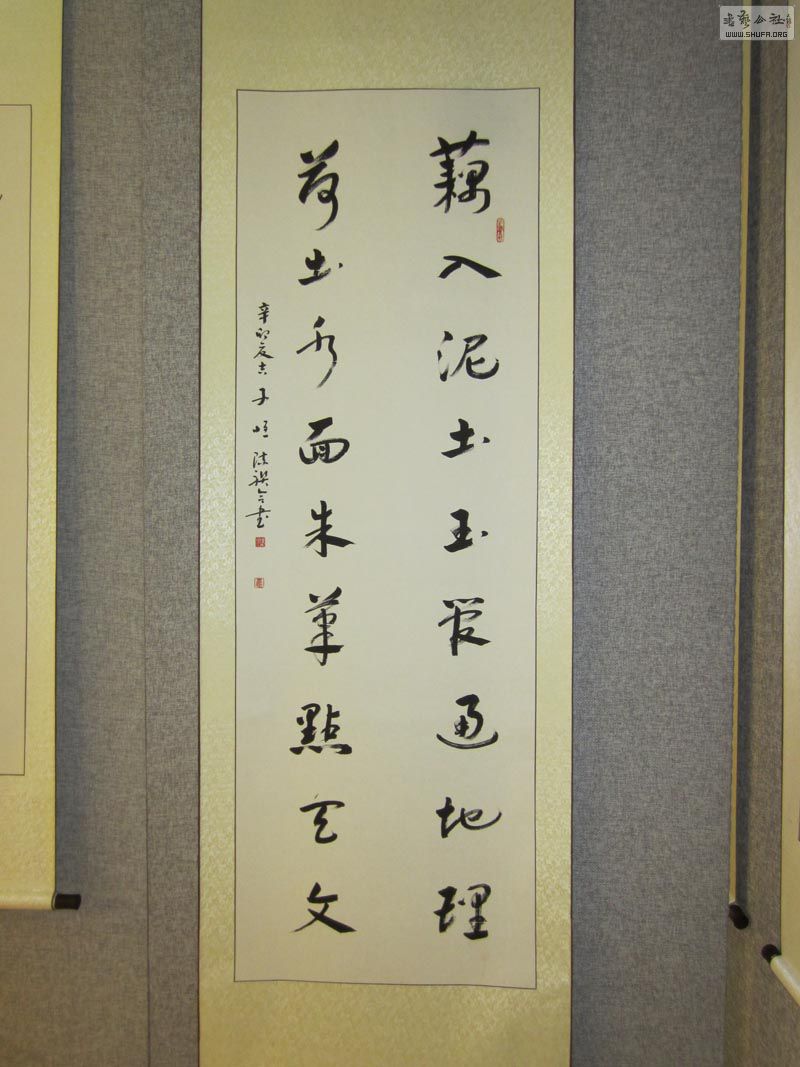 藕入泥土玉管通地理
荷出水面朱筆點天文
辛卯夏吉 子 書
書藝公社
WWW.SHUFA.ORG